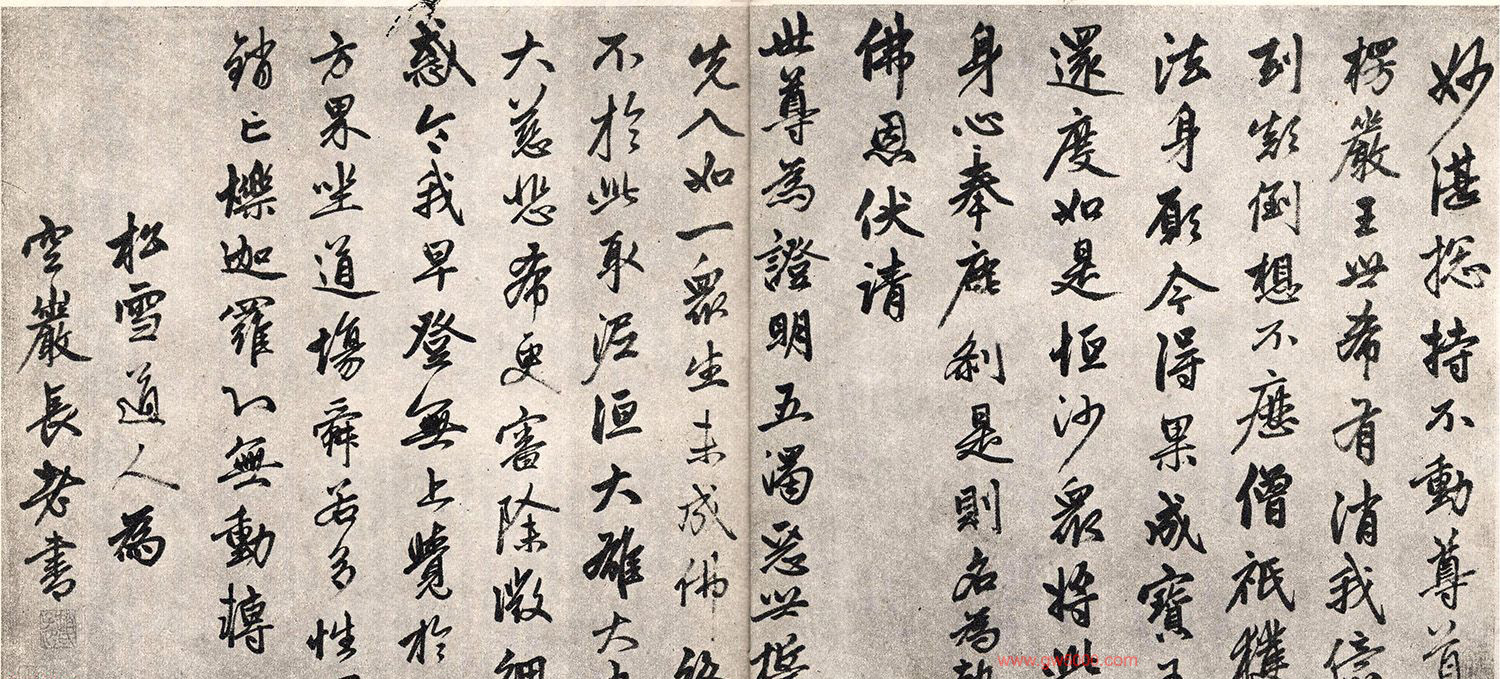 妙湛捴持不動尊首
楞嚴王世希有消我億
劫顛倒想不歷僧祇獲
法身願今得果成寶王
還度如是恒沙衆將此
身心奉塵刹是則名為報
佛恩伏請
世尊為證明五濁惡世誓
先入如一衆生未成佛終
不於此取泥洹大雄大
大慈悲希更審除微細
惑令我早登無上覺於
方界坐道場舜若多性
銷亡爍迦羅心無動轉
松雪道人為
空巖長老書